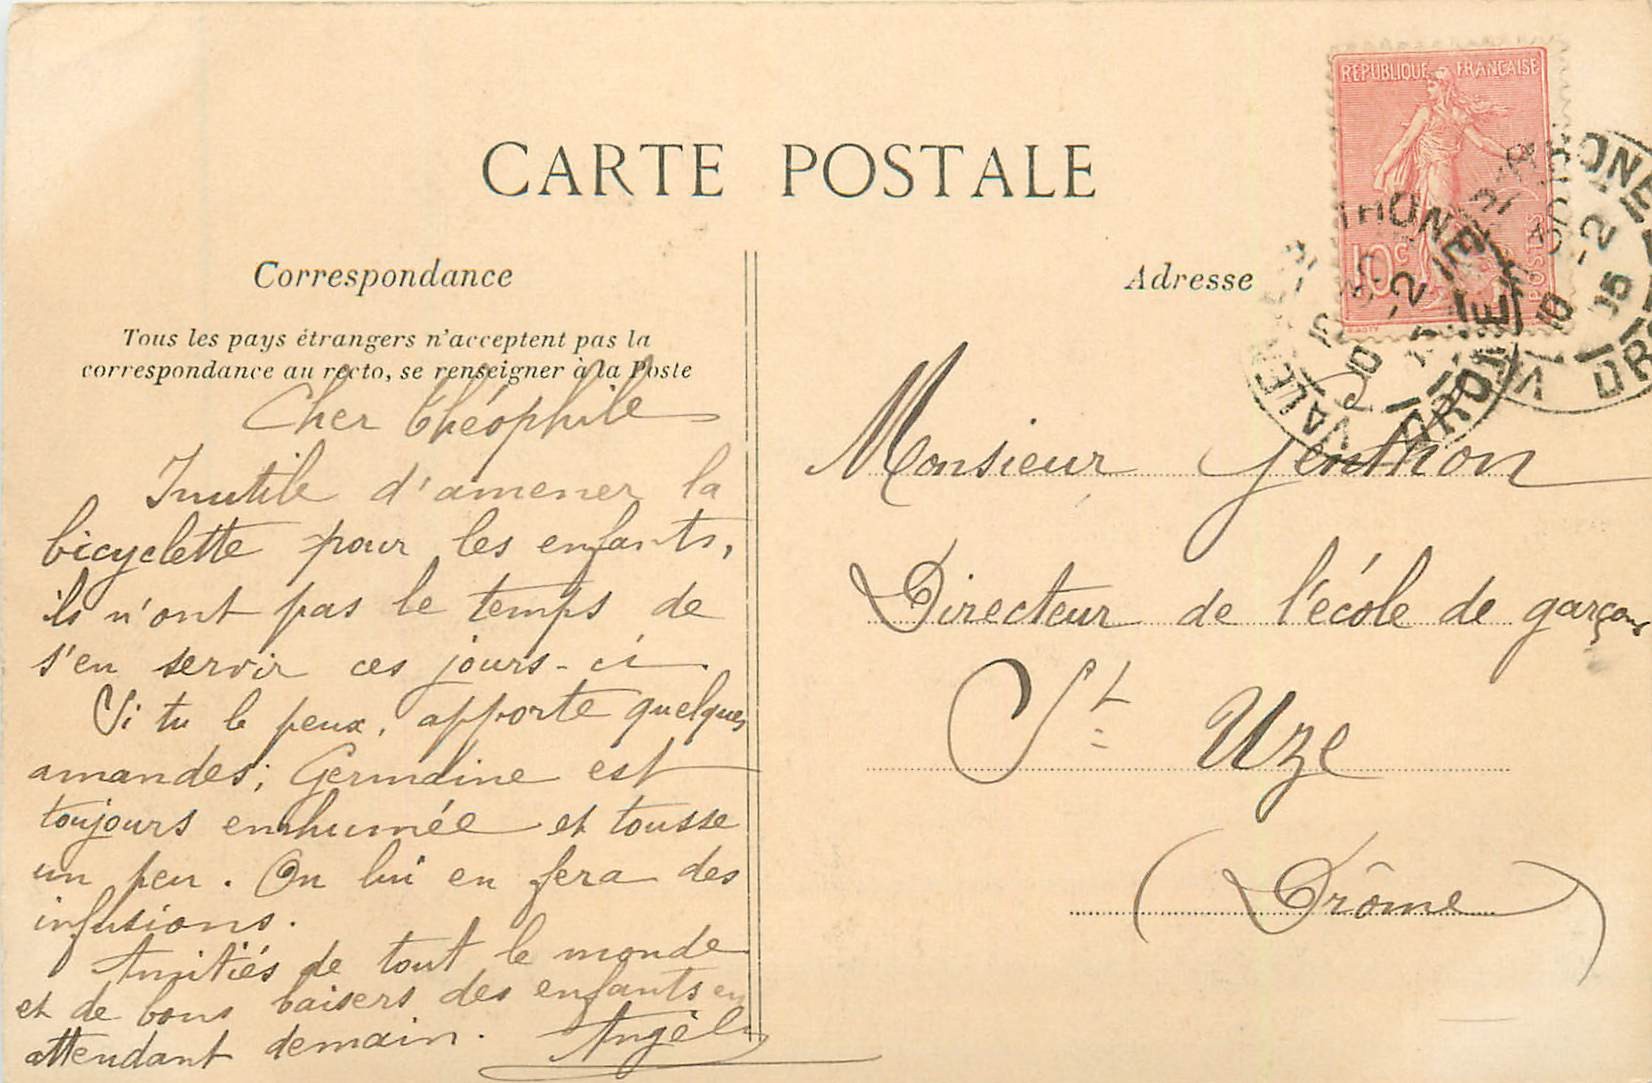 CARTE POSTALE
REPUBLIQUE FRANÇAISE
10c
POSTES
Correspondance
Tous les pays étrangers n'acceptent pas la
correspondance au recto, se renseigner à la Poste
Cher Théophile
Inutile d'amener la
bicyclette pour les enfants,
ils n'ont pas le temps de
s'en servir ces jours-ci.
Si tu le peux, apporte quelques
amandes; Germaine est
toujours enrhumée et tousse
un peu. On lui en fera des
infusions.
Amitiés de tout le monde
et de bons baisers des enfants en
attendant demain. Angèle
Adresse
Monsieur Genthon
Directeur de l'école de garçons
St Uze
(Drôme)
DROME